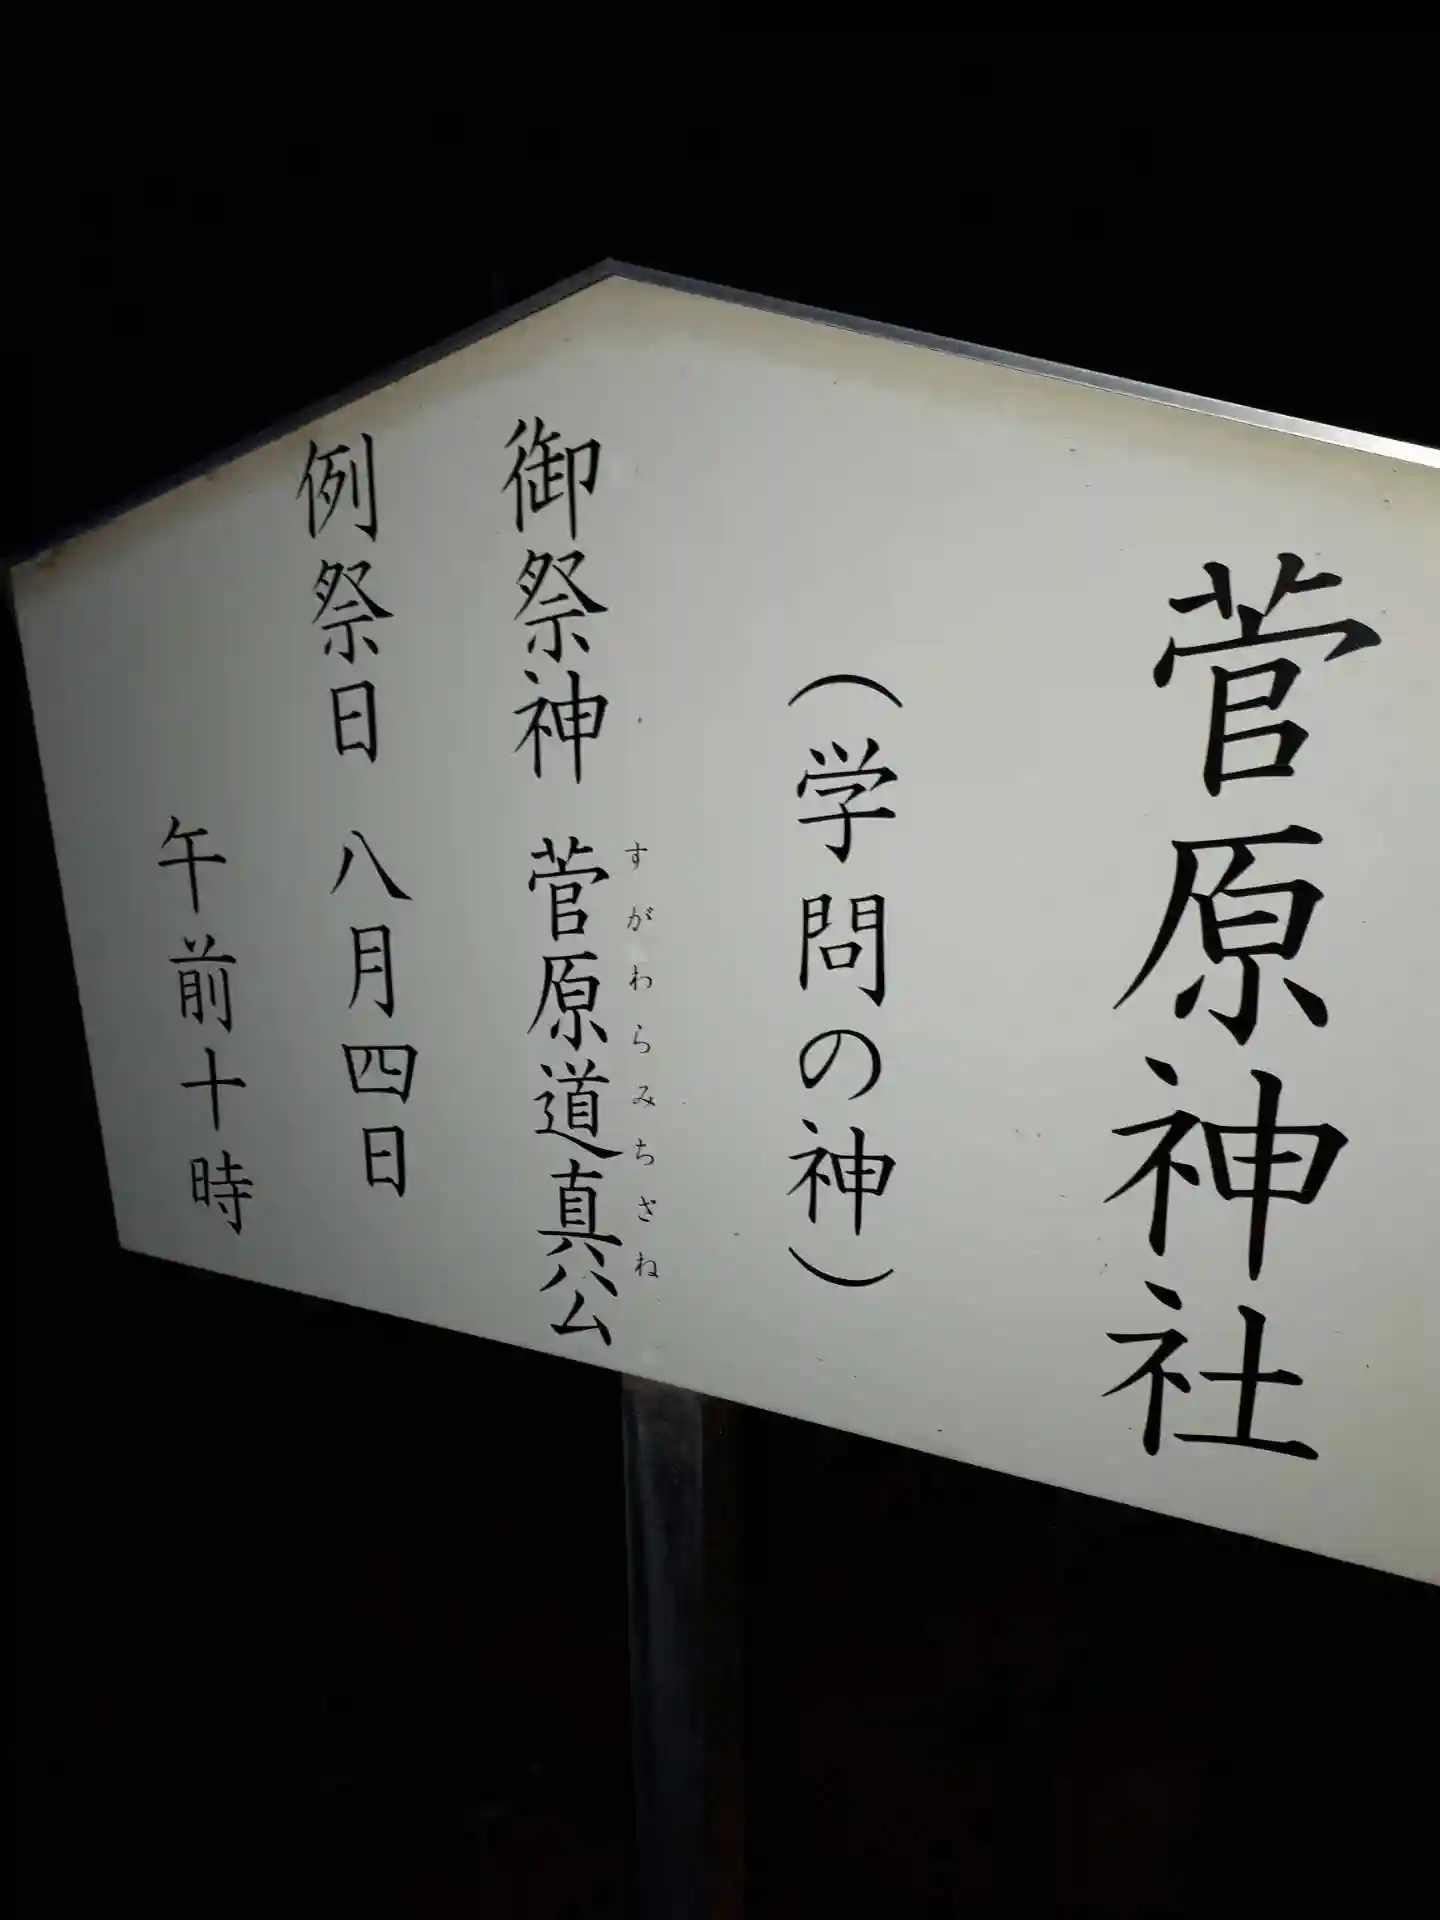 菅原神社
（学問の神）
御祭神 菅原道真公
すがわらみちざね
例祭日 八月四日
午前十時